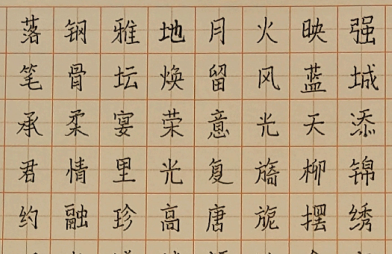 强城添锦绣
映蓝天柳摆
火风光旖旎
月留意复唐
地焕荣光高
雅坛宴里珍
钢骨柔情融
落笔承君约